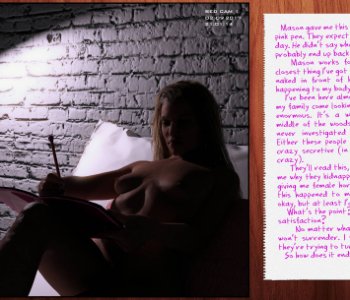 BED CAM 1
Mason gave me this
pink pen. They expect
day. He didn't say wh
probably end up back
Mason works fo
closest thing I've got
naked in front of h
happening to my body
I've been here alm
my family come looking
enormous. It's a w
middle of the woods
never investigated
Either these people
crazy secretive (in
crazy).
They'll read this,
me why they kidnapp
giving me female hor
this happened to m
okay, but at least I
What's the point
satisfaction?
No matter wha
won't surrender. I
they're trying to tu
So how does it end